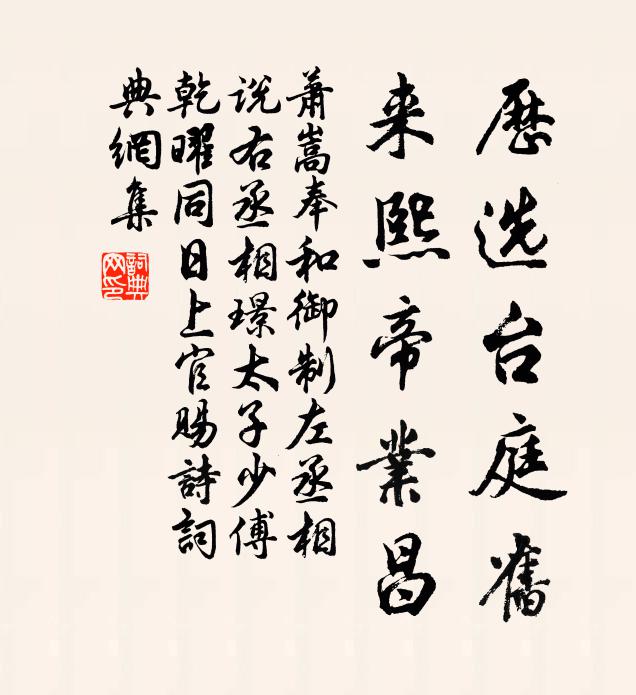 歷选台庭舊
来熙帝業昌
萧嵩奉和御制左丞相
说右丞相璟太子少傅
乾曜同日上官赐詩詞
典網集
詞典网印